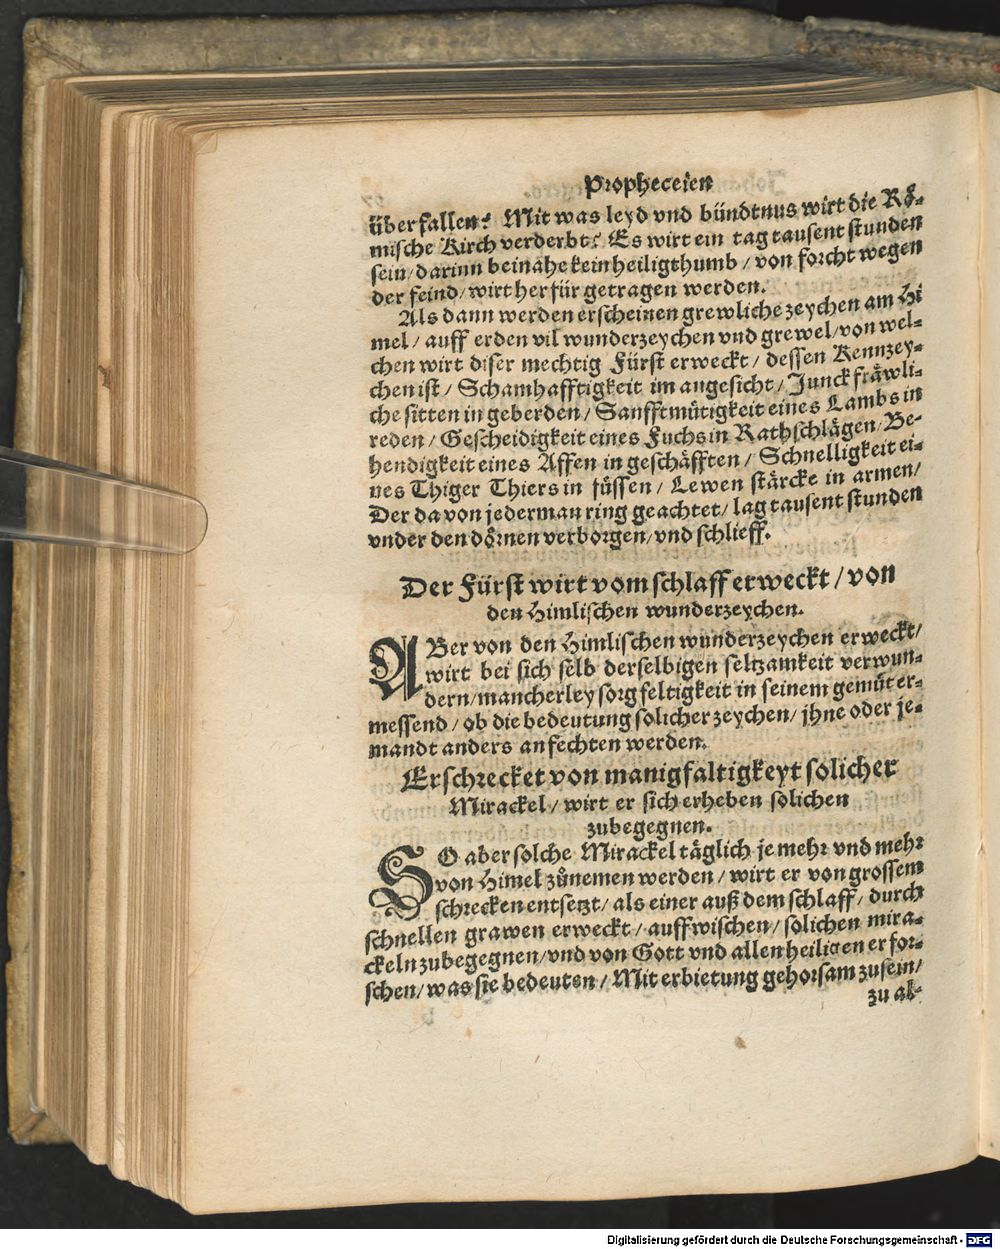 Propheceien
überfallen? Mit was leyd vnd bündtnus wirt die Rö-
mische Kirch verderbt? Es wirt ein tag tausent stunden
sein/ darinn beinahe kein heiligthumb/ von forcht wegen
der feind/ wirt herfür getragen werden.
Als dann werden erscheinen grewliche zeychen am Hi
mel/ auff erden vil wunderzeychen vnd grewel/ von wel-
chen wirt diser mechtig Fürst erweckt/ dessen Kennzey-
chen ist/ Schamhafftigkeit im angesicht/ Junckfräwli-
che sitten in geberden/ Sanfftmütigkeit eines Lambs in
reden/ Gescheidigkeit eines Fuchs in Rathschlägen/ Be-
hendigkeit eines Affen in geschäfften/ Schnelligkeit ei-
nes Thiger Thiers in füssen/ Lewen stärcke in armen/
Der da von jederman ring geachtet/ lag tausent stunden
vnder den dörnen verborgen/ vnd schlieff.
Der Fürst wirt vom schlaff erweckt/ von
den Himlischen wunderzeychen.
ABer von den Himlischen wunderzeychen erweckt/
wirt bei sich selb derselbigen seltzamkeit verwun-
dern/ mancherley sorgfeltigkeit in seinem gemüt er-
messend/ ob die bedeutung solicher zeychen/ jhne oder je-
mandt anders anfechten werden.
Erschrecket von manigfaltigkeyt solicher
Mirackel/ wirt er sich erheben solichen
zubegegnen.
SO aber solche Mirackel täglich je mehr vnd mehr
von Himel zůnemen werden/ wirt er von grossem
schrecken entsetzt/ als einer auß dem schlaff/ durch
schnellen grawen erweckt/ auffwischen/ solichen mira-
ckeln zubegegnen/ vnd von Gott vnd allen heiligen erfor-
schen/ was sie bedeuten/ Mit erbietung gehorsam zusein/
zu al-
Digitalisierung gefördert durch die Deutsche Forschungsgemeinschaft - DFG